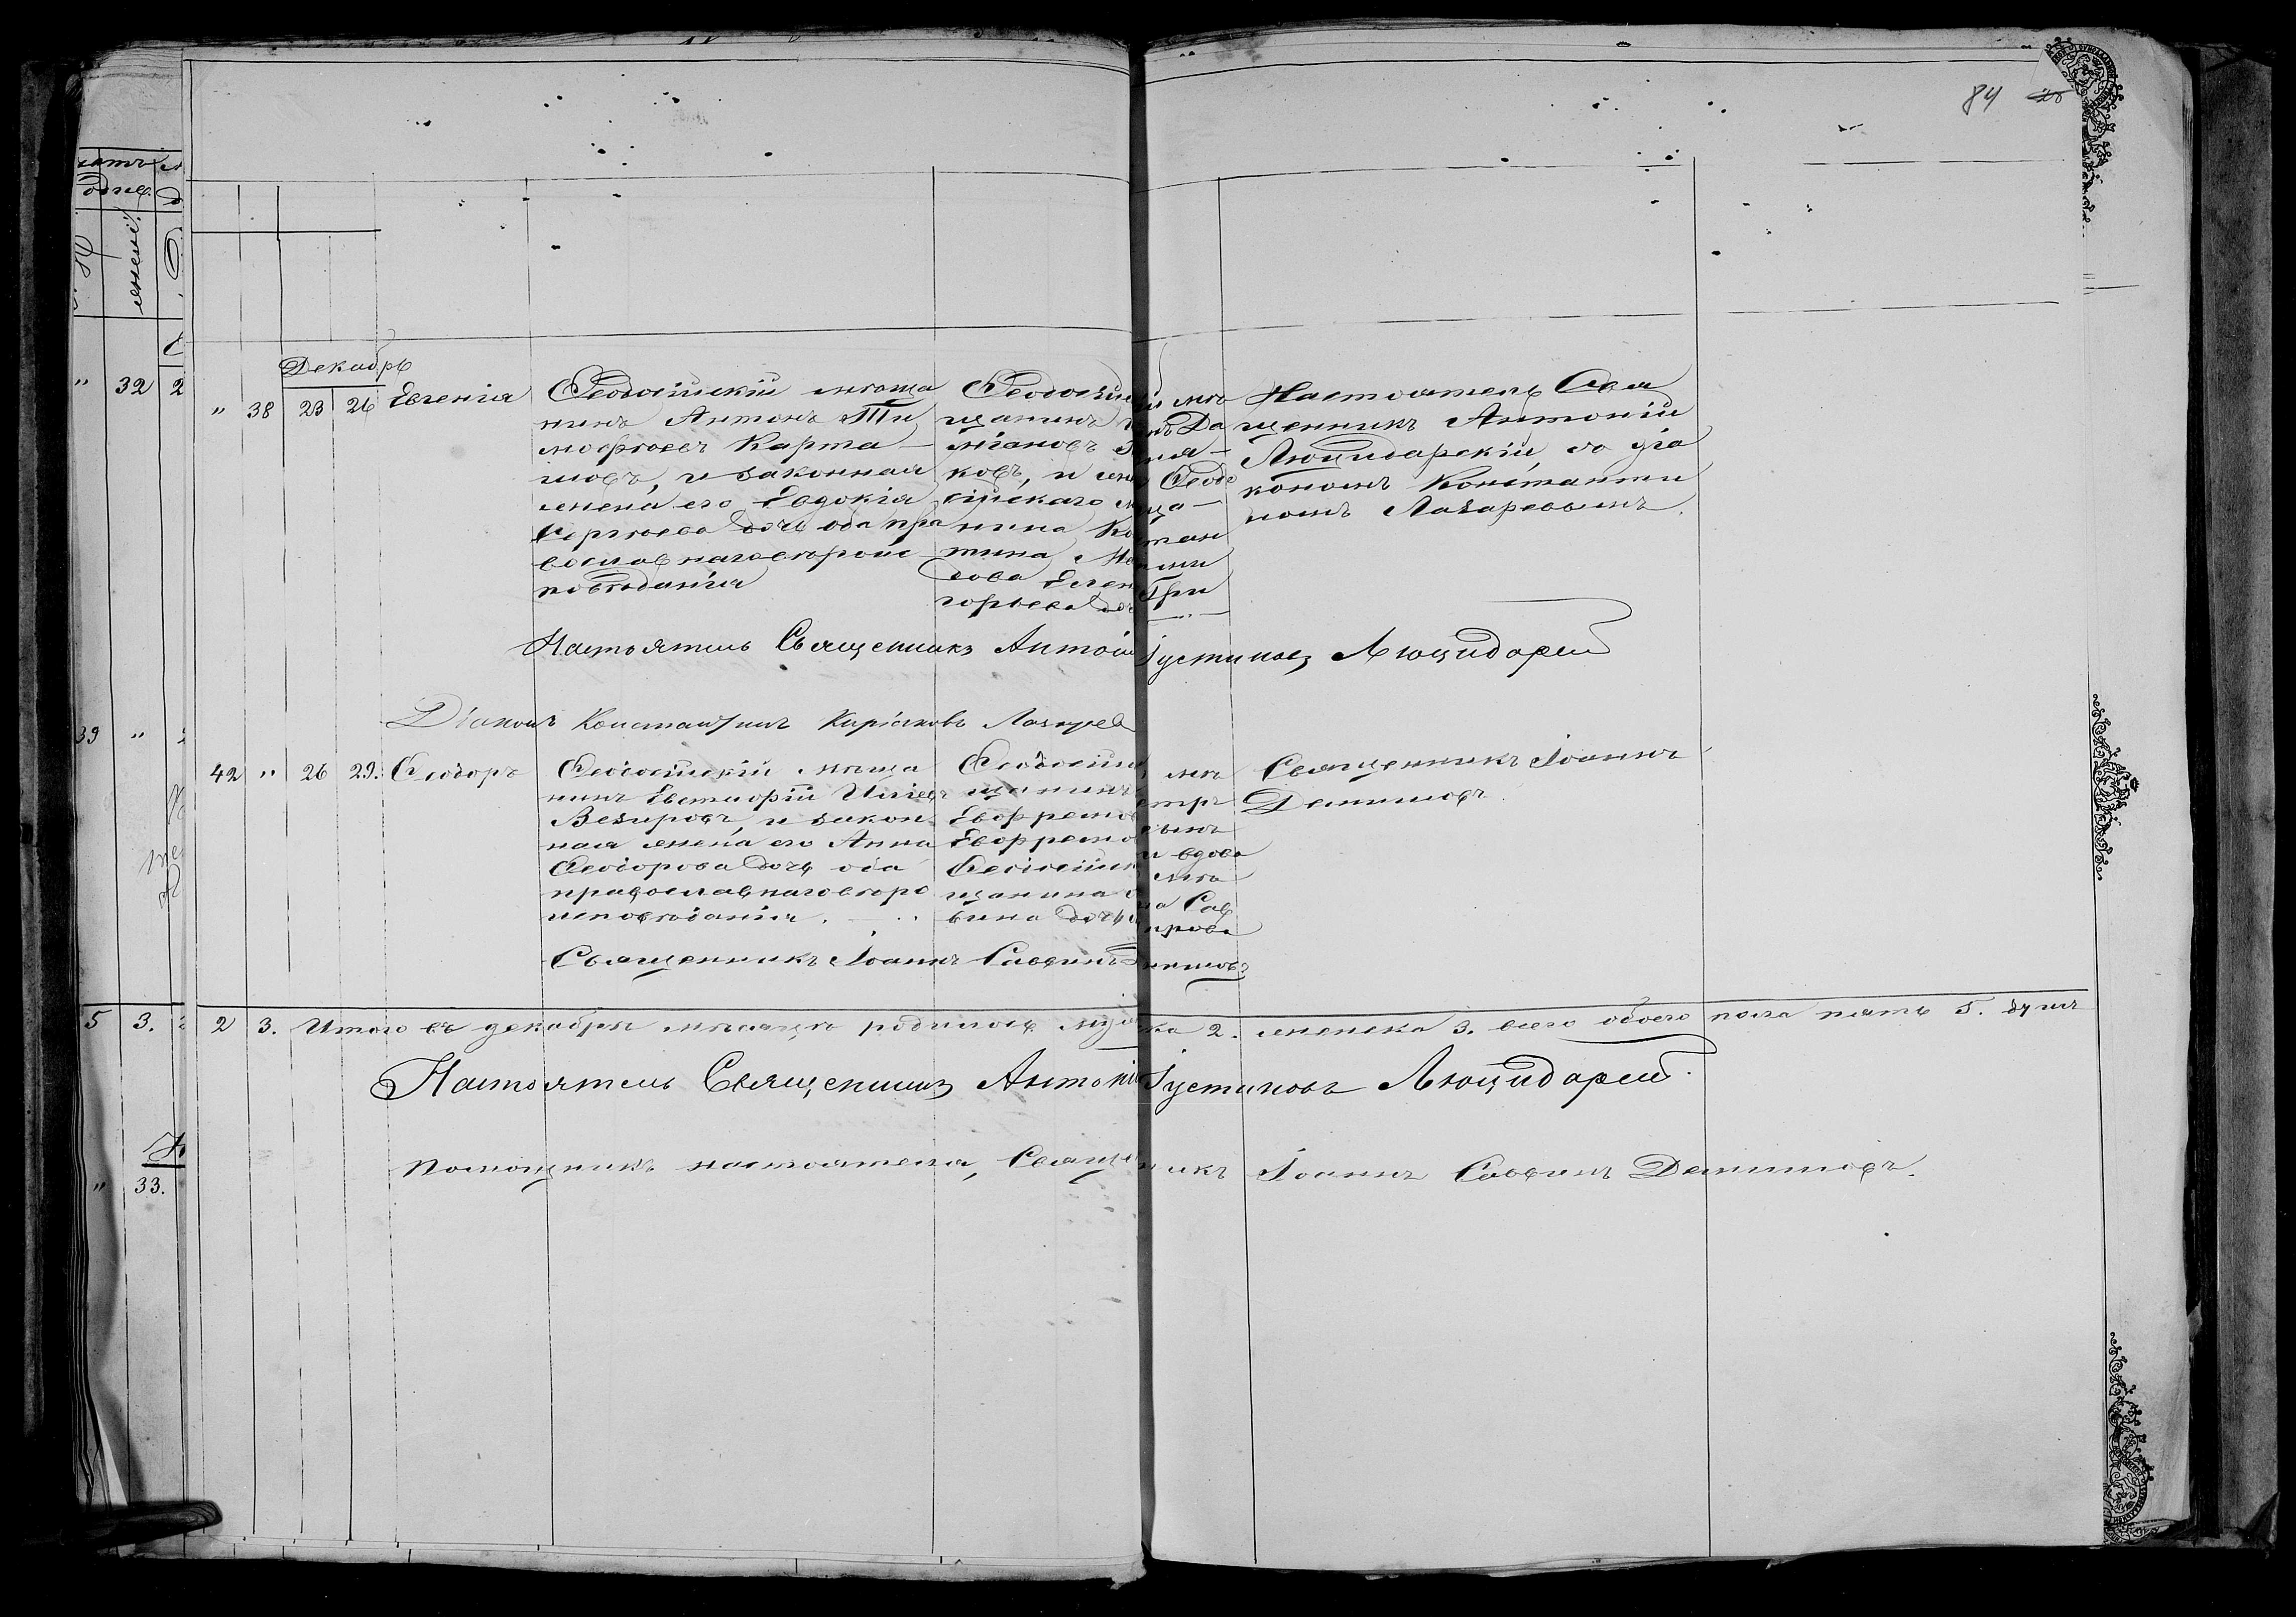 84 28
Декабрь
" 38 23 26 Евгенія
Ѳеодосійскій мѣща
нинъ Антонъ Ти
мофѣевъ Карта—
шовъ, и законная
жена его Евдокія
Сергѣева дочь оба пра
вославнаго вѣроис
повѣданія
Ѳеодосійскій мѣ
щанинъ Да
міановъ
ковъ, и Ѳеодо
сійскаго мѣща—
нина Констан
тина
дова Евген Гри
горьева доч
Настоятель Свя
щенникъ Антоній
Люцидарскій, со діа
кономъ Константи
номъ Лазаревымъ.
Настоятель Священникъ Антоній Іустиновъ Люцидарскій
Діаконъ Константинъ Киріаковъ Лазарев
42 " 26 29. Ѳеодоръ
Ѳеодосійскій мѣща
нинъ Евстафій Иліевъ
Везировъ, и закон
ная жена его Анна
Ѳеодорова дочь оба
православнаго вѣро
исповѣданія.
Ѳеодосійск мѣ
щанинъ етръ
Евфремов
Евфремо
и вдова
Ѳеодосійск мѣ
щанина Сав
вина дочь
ирова
Священникъ Іоаннъ
Демишовъ.
Священникъ Іоаннъ Саввинъ Демишовъ
2 3. Итого въ декабрѣ мѣсяцѣ родилось мужска 2. женска 3. всего обоего пола пять 5. душъ
Настоятель Священникъ Антоній Іустиновъ Люцидарскій.
Помощникъ настоятеля, Священникъ Іоаннъ Саввинъ Демишовъ.
" 32 2
39 "
5 3.
" 33.